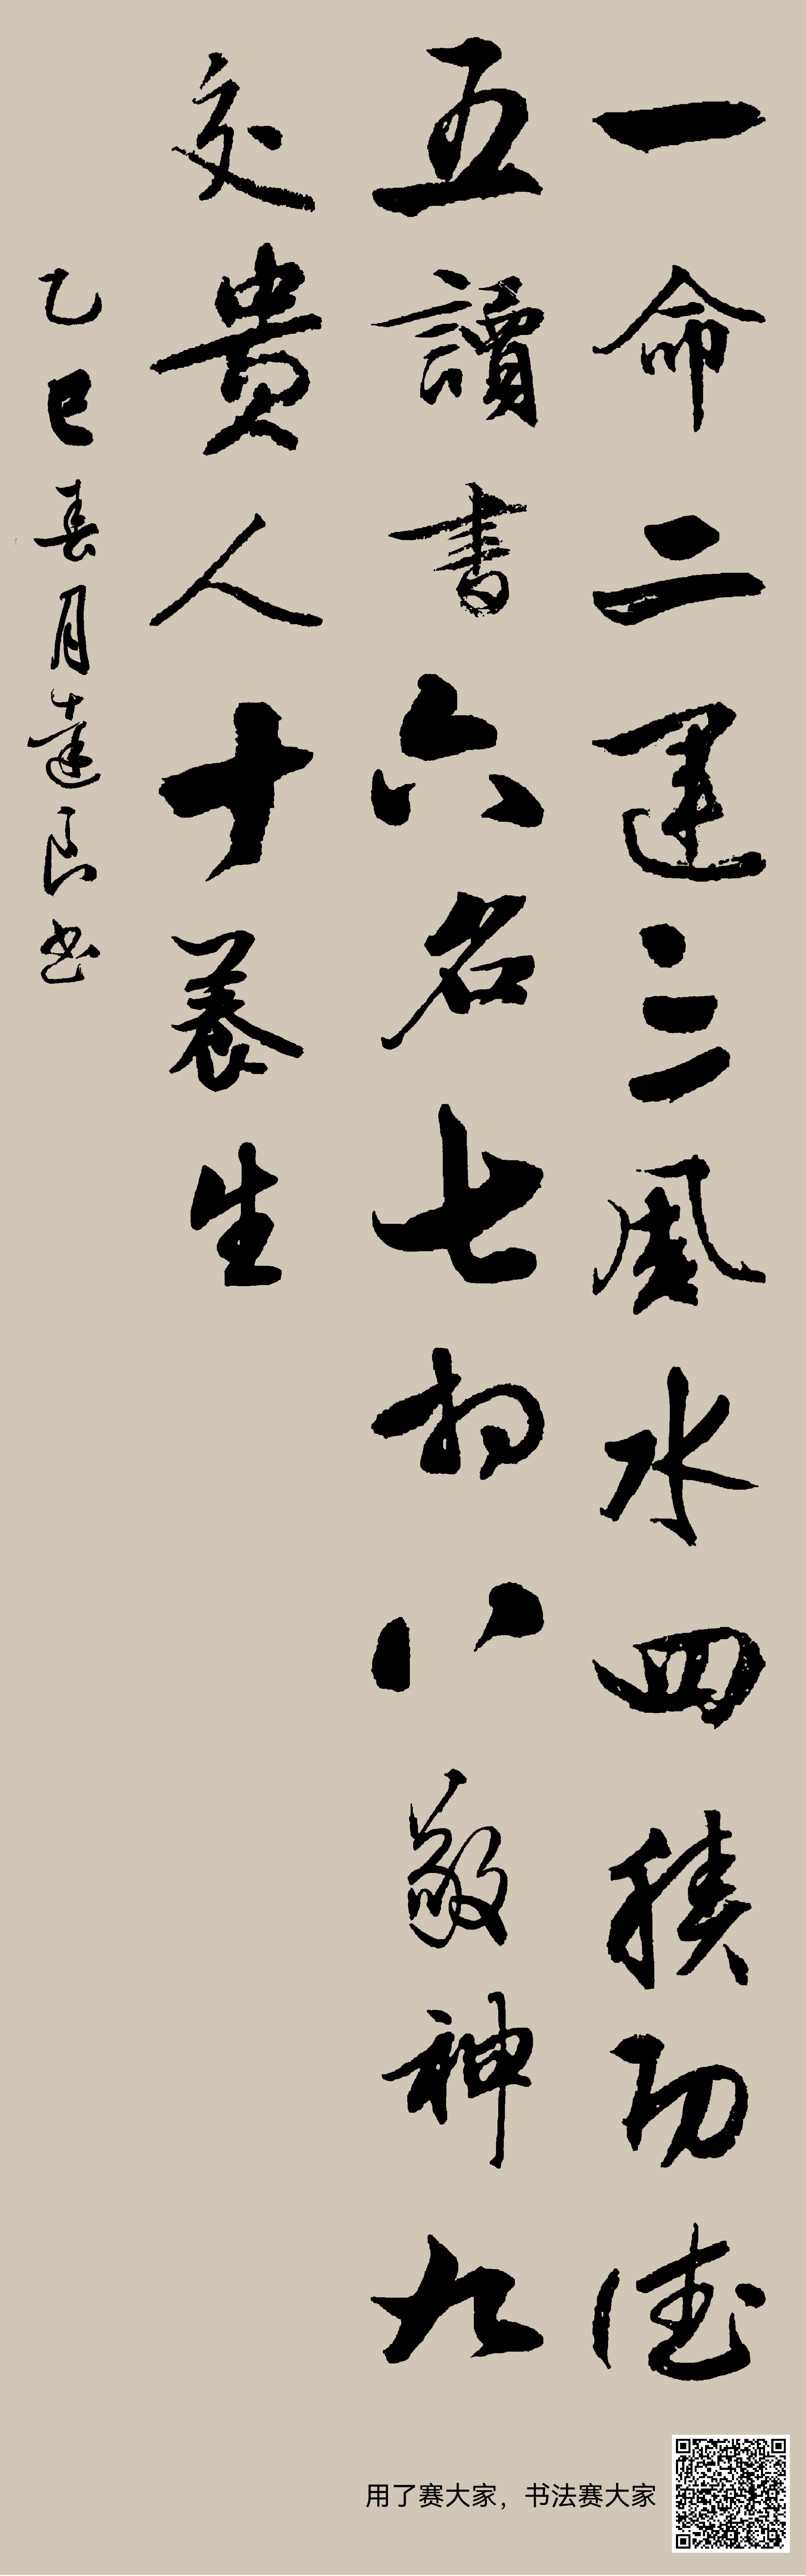 一命二運三風水四積功德
五讀書六名七相八敬神九
交貴人十養生
乙巳春月達良书
用了赛大家，书法赛大家